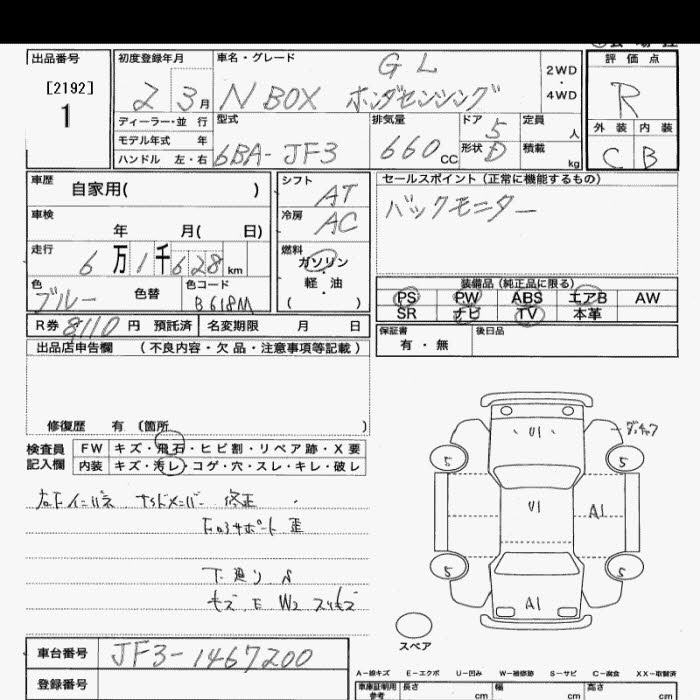 出品番号
[2192]
1
初度登録年月
2 3月
車名・グレード
GL
N BOX ホンダセンシング
2WD
・
4WD
評価点
R
外装 内装
C B
ディーラー・並行
モデル年式 年
ハンドル 左・右
型式
6BA-JF3
排気量
660cc
ドア 5
形状 D
定員 人
積載 kg
車歴
自家用( )
車検
年 月( 日)
走行
6万1千628km
色
ブルー
色替
色コード
B618M
シフト
AT
冷房
AC
燃料
ガソリン
・
軽・油
( )
セールスポイント(正常に機能するもの)
バックモニター
装備品(純正品に限る)
PS PW ABS エアB AW
SR ナビ TV 本革
R券 8110円 預託済
名変期限 月 日
保証書
有・無
後日品
出品店申告欄 (不良内容・欠品・注意事項等記載)
修復歴 有 〔箇所
検査員
記入欄
FW キズ・飛石・ヒビ割・リペア跡・X要
内装 キズ・汚レ・コゲ・穴・スレ・キレ・破レ
右F インパネ サイドメンバー 修正
サポート 歪
下廻り
U1
5 5
U1
A1
5 5
A1
スペア
車台番号
JF3-1467200
登録番号
A-線キズ E-エクボ U-凹み W-補修跡 S-サビ C-腐食 XX-取替済
車庫証明用
参考
長さ cm
幅 cm
高さ cm